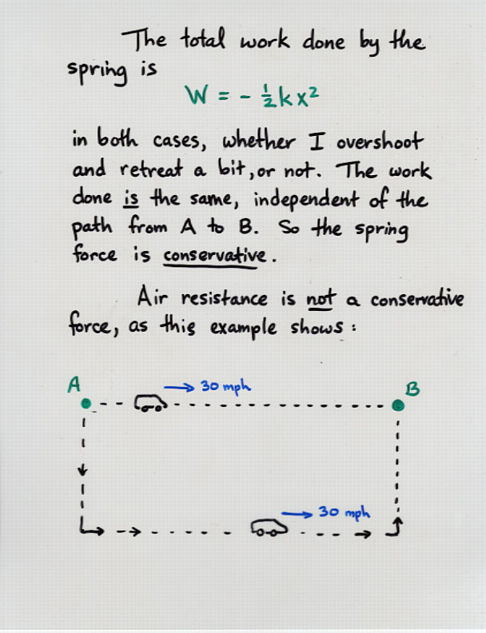 The total work done by the
spring is
W = - ½kx²
in both cases, whether I overshoot
and retreat a bit, or not. The work
done is the same, independent of the
path from A to B. So the spring
force is conservative.
Air resistance is not a conservative
force, as this example shows:
A
30 mph
B
30 mph